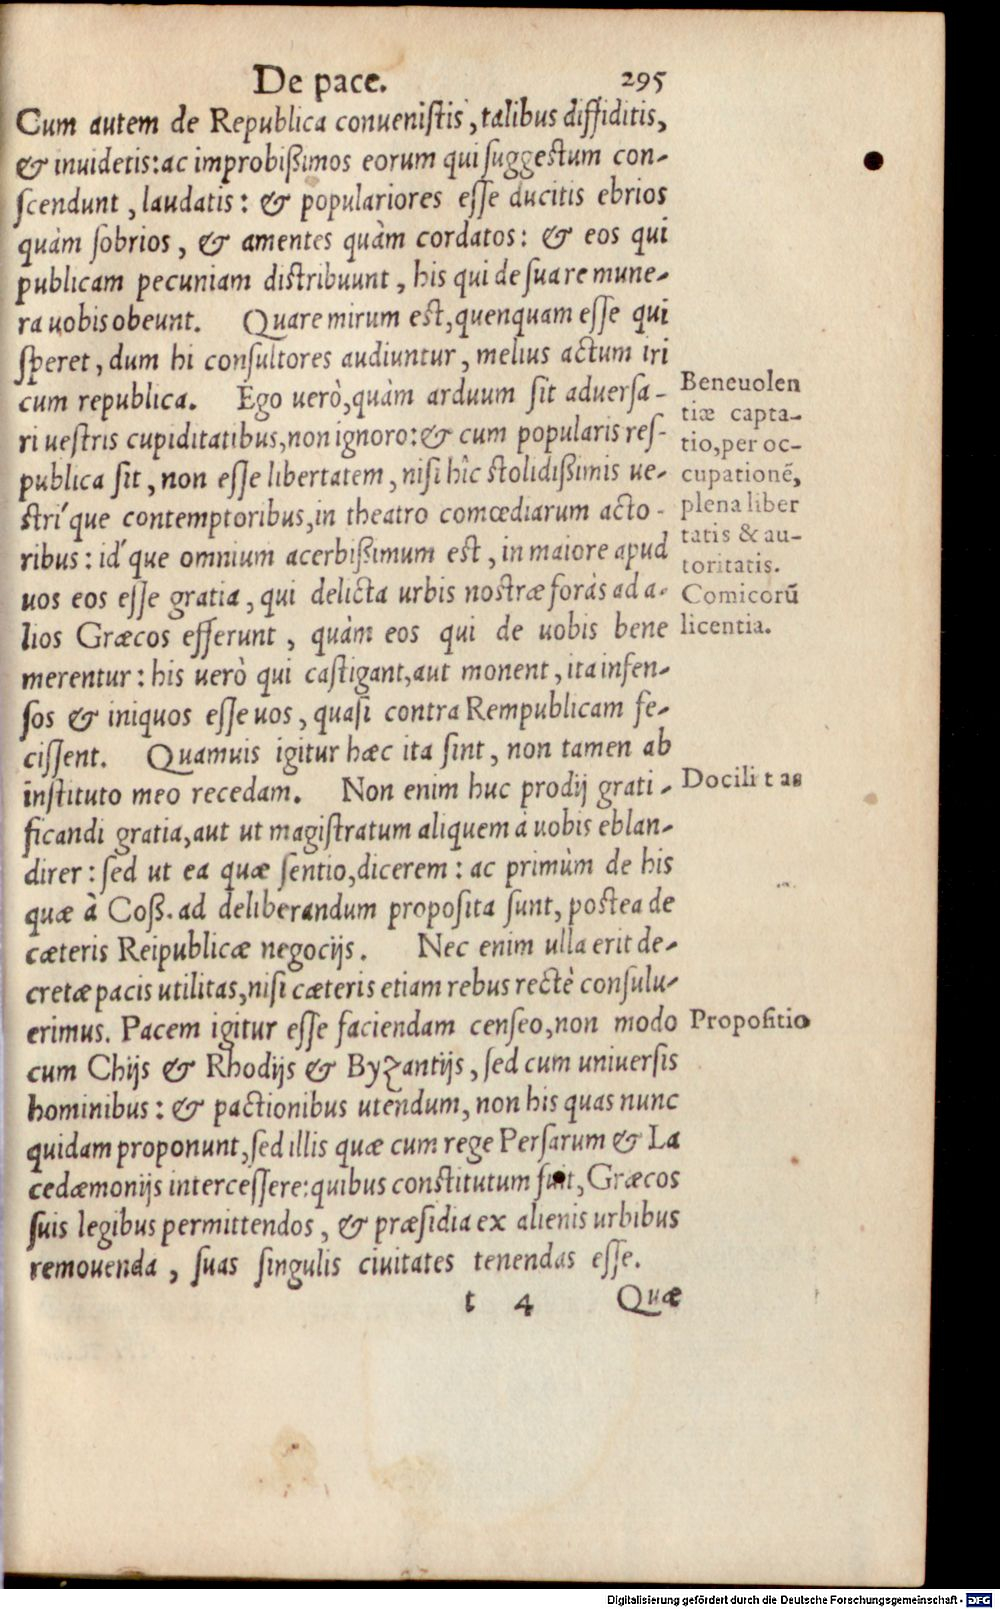 De pace. 295
Cum autem de Republica conuenistis, talibus diffiditis,
& inuidetis: ac improbißimos eorum qui suggestum con-
scendunt, laudatis: & populariores esse ducitis ebrios
quàm sobrios, & amentes quàm cordatos: & eos qui
publicam pecuniam distribuunt, his qui de sua re mune-
ra uobis obeunt. Quare mirum est, quenquam esse qui
speret, dum hi consultores audiuntur, melius actum iri
cum republica. Ego uerò, quàm arduum sit aduersa-
ri uestris cupiditatibus, non ignoro: & cum popularis res-
publica sit, non esse libertatem, nisi hîc stolidißimis ue-
stri´que contemptoribus, in theatro comœdiarum acto-
ribus: id´que omnium acerbißimum est, in maiore apud
uos eos esse gratia, qui delicta urbis nostræ foràs ad a-
lios Græcos efferunt, quàm eos qui de uobis bene
merentur: his uerò qui castigant, aut monent, ita infen-
sos & iniquos esse uos, quasi contra Rempublicam fe-
cissent. Quamuis igitur hæc ita sint, non tamen ab
instituto meo recedam. Non enim huc prodij grati-
ficandi gratia, aut ut magistratum aliquem à uobis eblan-
direr: sed ut ea quæ sentio, dicerem: ac primùm de his
quæ à Coß. ad deliberandum proposita sunt, postea de
cæteris Reipublicæ negocijs. Nec enim ulla erit de-
cretæ pacis utilitas, nisi cæteris etiam rebus rectè consulu-
erimus. Pacem igitur esse faciendam censeo, non modo
cum Chijs & Rhodijs & Byzantijs, sed cum uniuersis
hominibus: & pactionibus utendum, non his quas nunc
quidam proponunt, sed illis quæ cum rege Persarum & La
cedæmonijs intercessere: quibus constitutum fuit, Græcos
suis legibus permittendos, & præsidia ex alienis urbibus
remouenda, suas singulis ciuitates tenendas esse.
t 4 Quæ
Beneuolen
tiæ capta-
tio, per oc-
cupationẽ,
plena liber
tatis & au-
toritatis.
Comicorũ
licentia.
Docilitas
Propositio
Digitalisierung gefördert durch die Deutsche Forschungsgemeinschaft - DFG